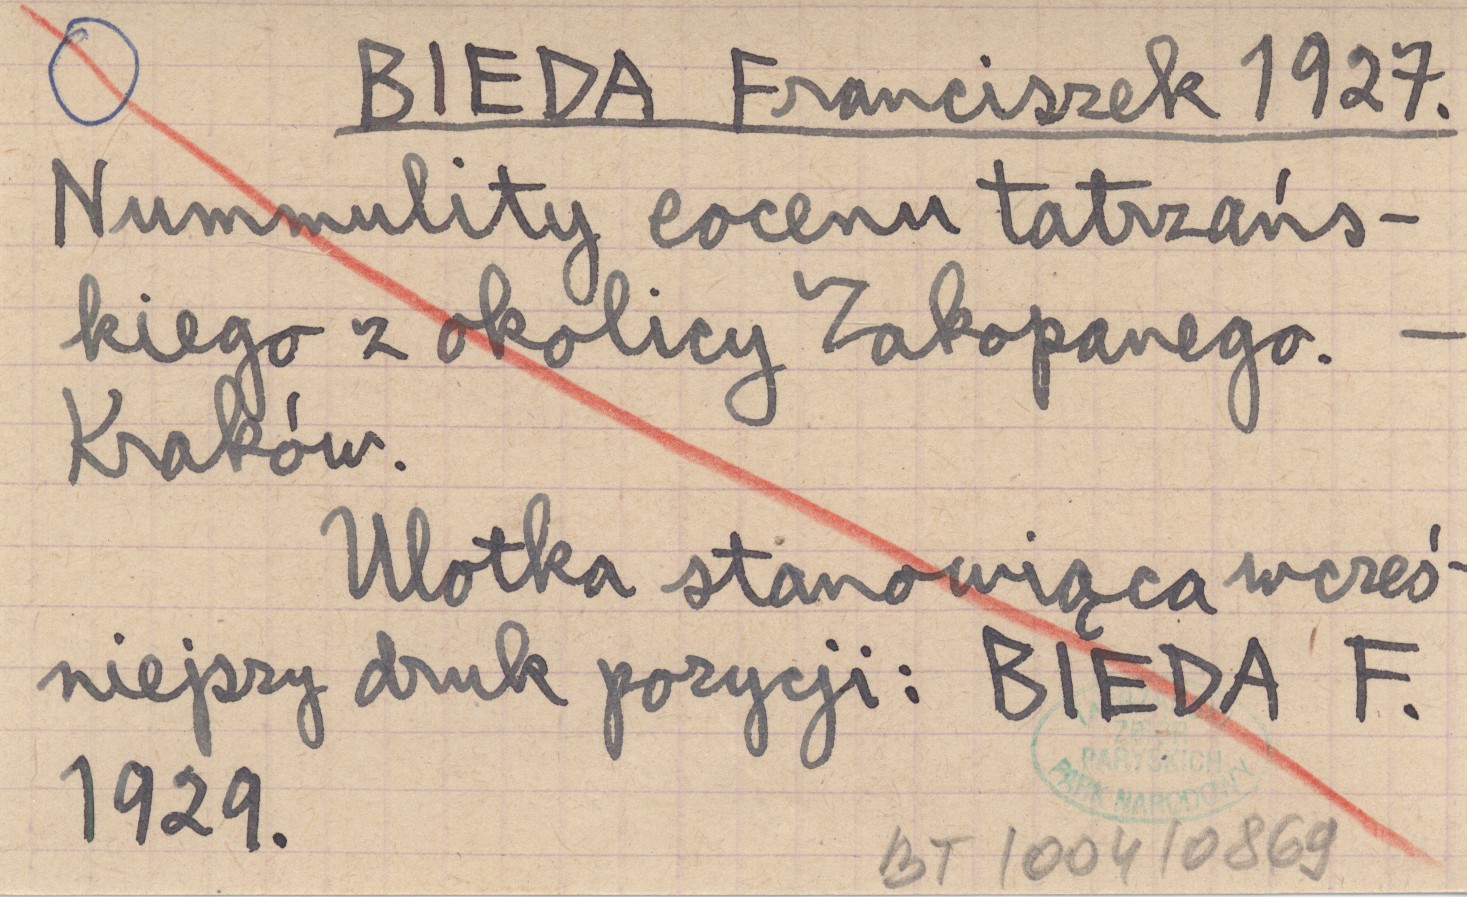 BIEDA Franciszek 1927.
Nummulity eocenu tatrzańs-
kiego z okolicy Zakopanego. —
Kraków.
Ulotka stanowiąca wcześ-
niejszy druk pozycji: BIEDA F.
1929.
ZBIÓR
PARYSKICH
PARK NARODOWY
BT 1004 10869